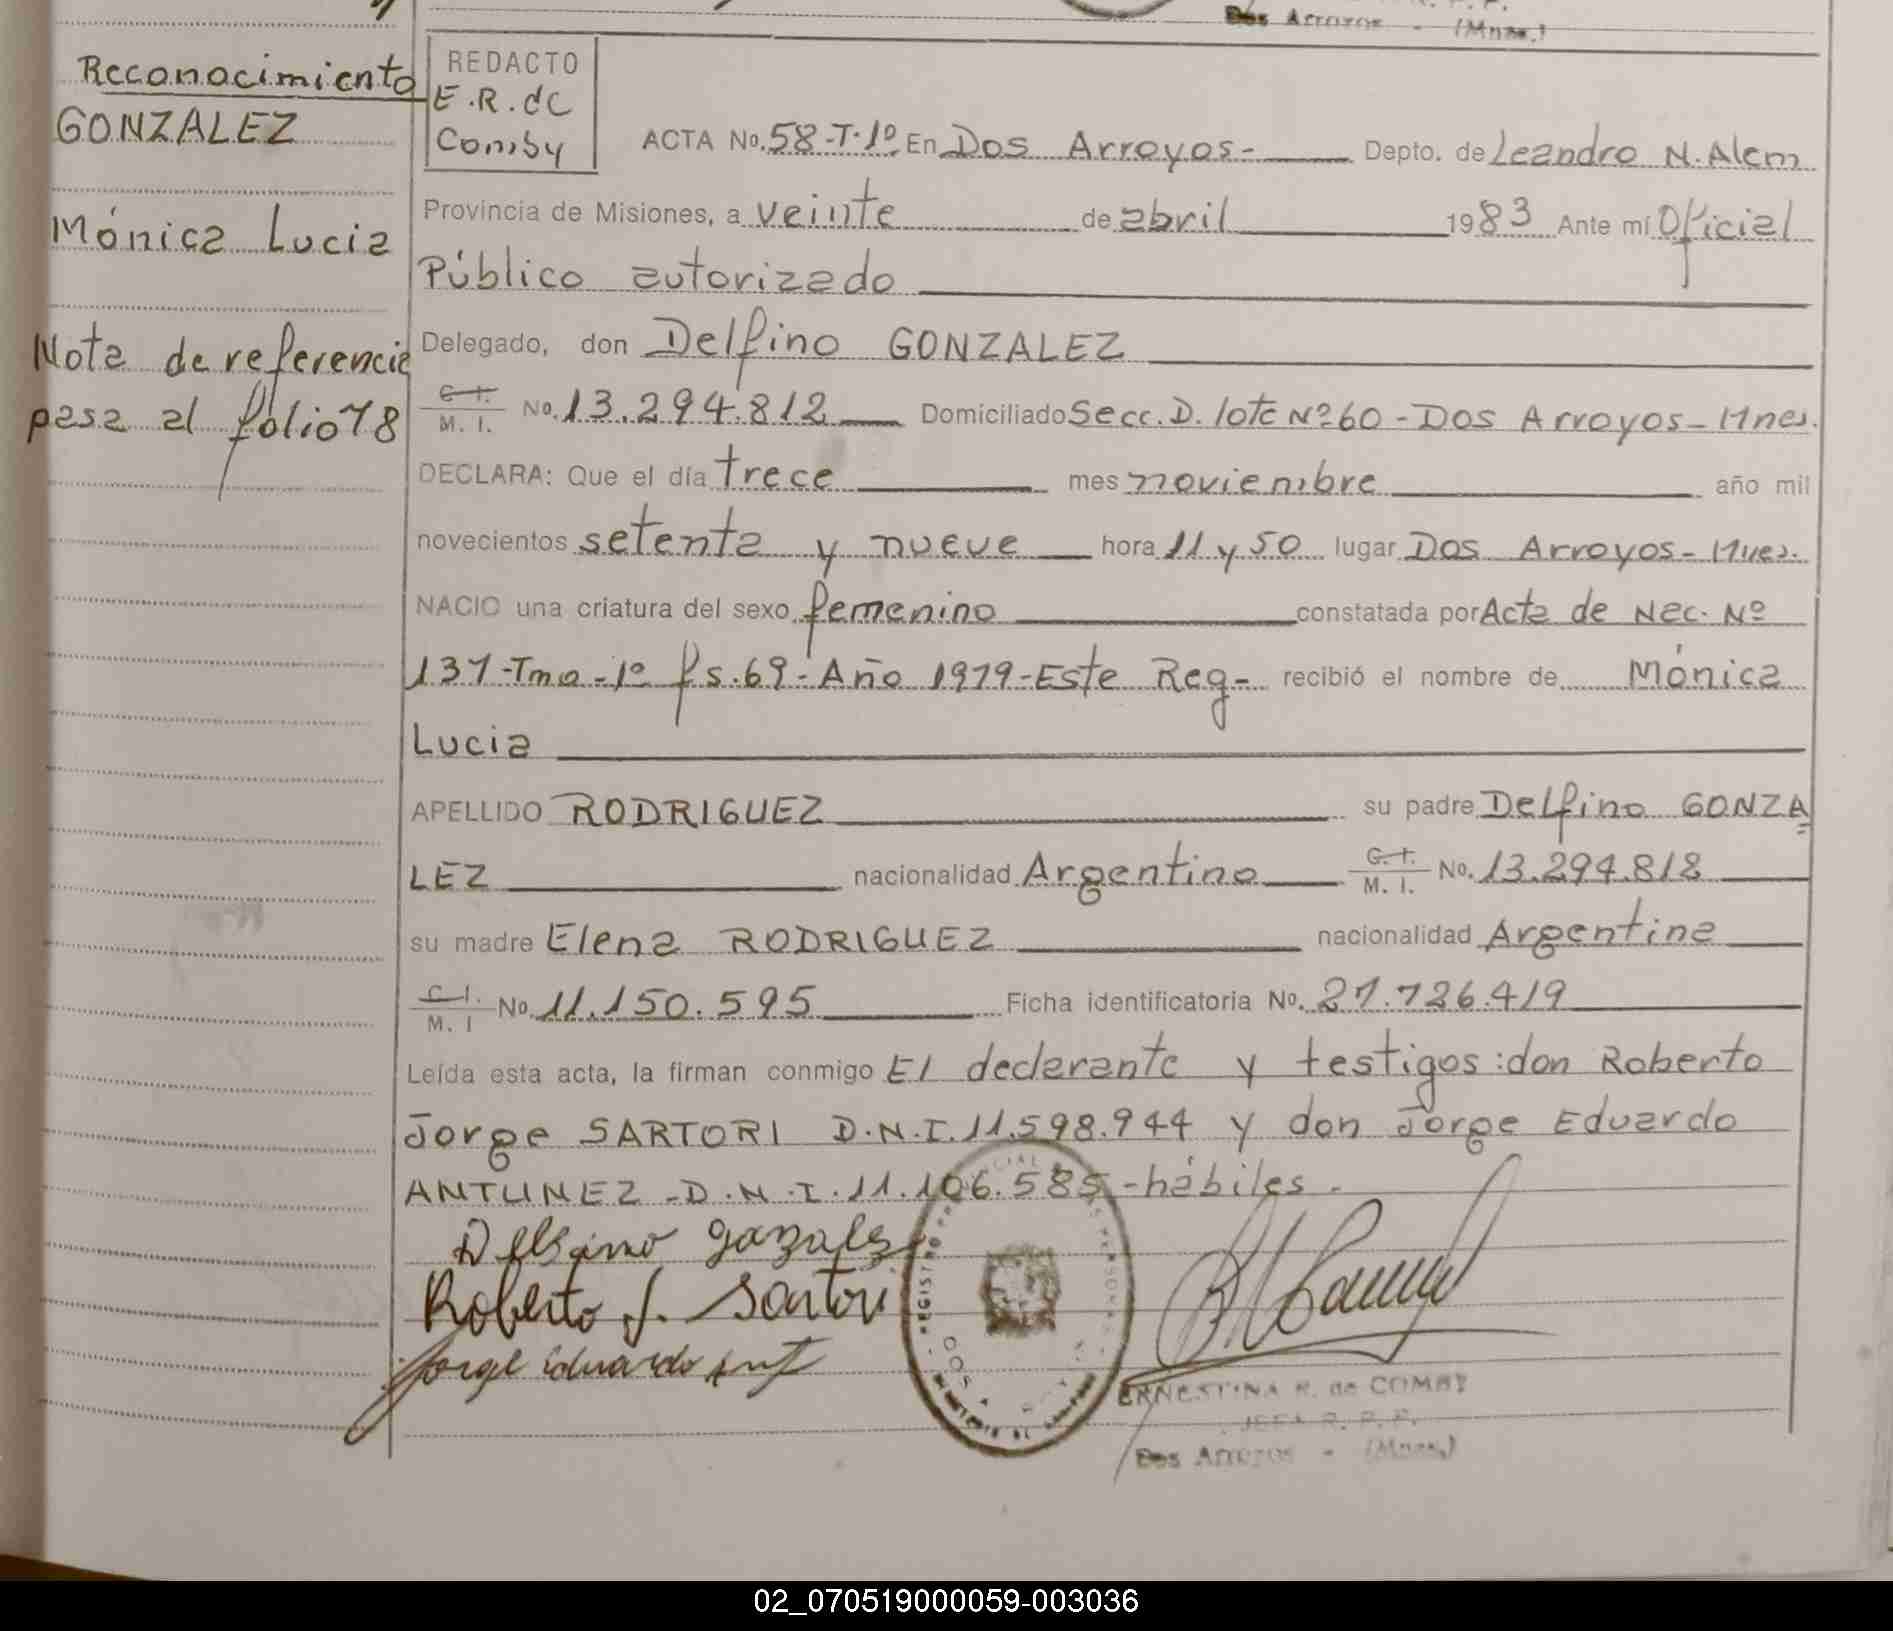 Dos Arroyos - (Mnes.)
Reconocimiento
GONZALEZ
Mónica Lucia
Nota de referencia
pasa al folio 78
REDACTO
E.R.dC
Comby
ACTA No. 58-T-1º En Dos Arroyos- Depto. de Leandro N. Alem
Provincia de Misiones, a veinte de abril 1983 Ante mí Oficial
Público autorizado
Delegado, don Delfino GONZALEZ
C. I. M. I. No. 13.294.812 Domiciliado Secc. D. lote Nº 60 - Dos Arroyos - Mnes.
DECLARA: Que el día trece mes noviembre año mil
novecientos setenta y nueve hora 11 y 50 lugar Dos Arroyos - Mnes.
NACIO una criatura del sexo femenino constatada por Acta de Nac. Nº
137-Tmo-1º fs.69-Año 1979-Este Reg- recibió el nombre de Mónica
Lucia
APELLIDO RODRIGUEZ su padre Delfino GONZA
LEZ nacionalidad Argentino C. I. M. I. No. 13.294.812
su madre Elena RODRIGUEZ nacionalidad Argentina
C. I. M. I No. 11.150.595 Ficha identificatoria No. 27.726.419
Leída esta acta, la firman conmigo El declarante y testigos: don Roberto
Jorge SARTORI D.N.I. 11.598.944 y don Jorge Eduardo
ANTUNEZ - D.N.I. 11.106.585 - hábiles.
Roberto J. Sartori
Jorge Eduardo
ERNESTINA R. de COMBY
JEFA R. P. P.
Dos Arroyos - (Mnes.)
02_070519000059-003036